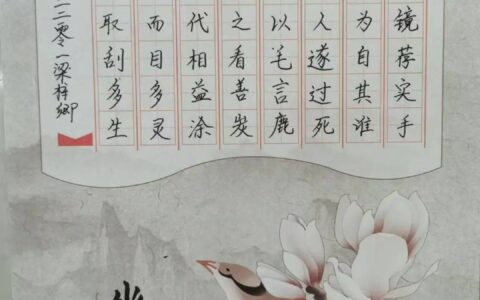 镜荐实手
为自其谁
人遂过死
以毛言鹿
之看善炭
代相益涂
而目多灵
取刮多生
二二零一梁梓